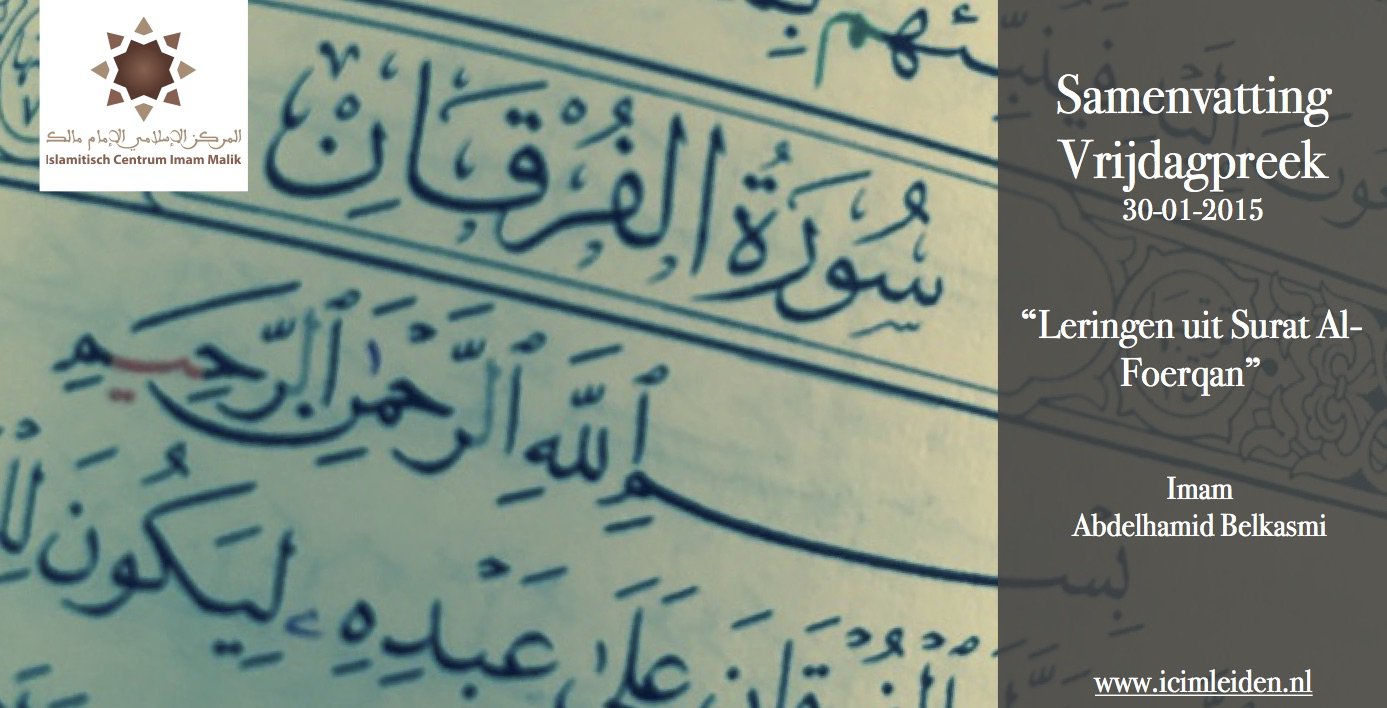 المركز الإسلامي الإمام مالك
Islamitisch Centrum Imam Malik
سُورَةُ الفُرْقَانِ
اِ۬للَّهِ اِ۬لرَّحْمَٰنِ اِ۬لرَّحِيمِ
عَلَىٰ عَبْدِهِۦ لِيَكُونَ
Samenvatting
Vrijdagpreek
30-01-2015
“Leringen uit Surat Al-
Foerqan”
Imam
Abdelhamid Belkasmi
www.icimleiden.nl